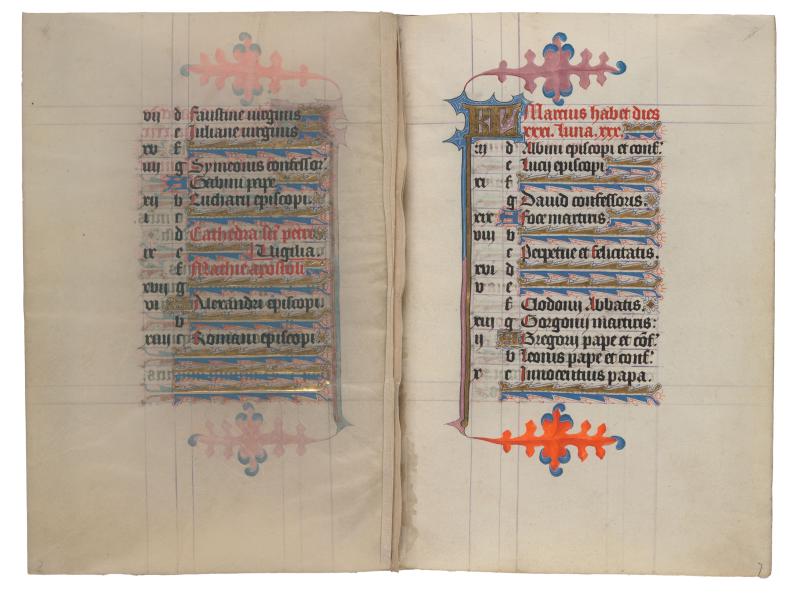 vij d Faustine virginis
e Iuliane virginis
xv f
iiij g Symeonis confessor'
A Gabini pape
xij b Eucharii episcopi
i c
d Cathedra sci petri
ix e Vigilia
f Mathie apostoli
xvij g
vi Alexandri episcopi
b
xiiij c Romani episcopi
KL Marcius habet dies
xxxi. Luna. xxx.
iij d Albini episcopi et conf'
e Lucii episcopi
xi f
g Dauid confessoris
xix A Foce martiris
viij b
c Perpetue et felicitatis.
xvi d
v e
f Clodonij Abbatis.
xiij g Gorgonij martiris:
ij A Gregorij pape et cōf'
b Leonis pape et conf'
x c Innocentius papa.